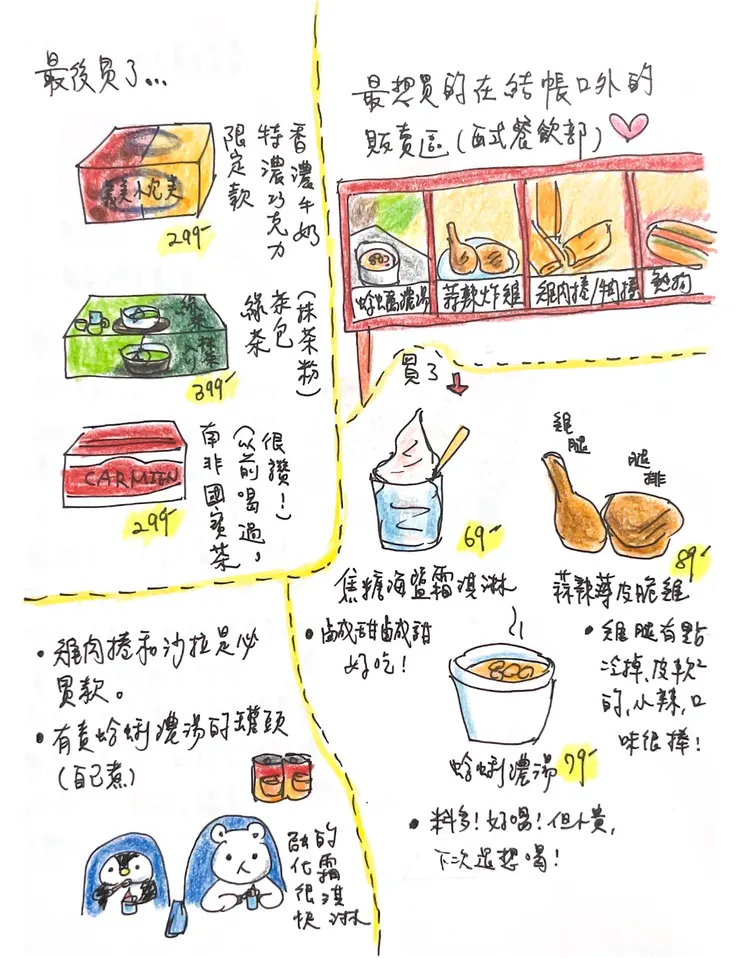 最後買了...
義美小泡芙
299-
香濃牛奶
特濃巧克力
限定款
綠茶
抹茶
399-
(抹茶粉)
茶包
綠茶
CARMIEN
299-
很讚!)
(以前喝過,
南非國寶茶
最想買的在結帳口外的
販賣區(西式餐飲部)
蛤蠣濃湯
蒜辣炸雞
雞肉捲/牛肉捲
熱狗
買了
69-
焦糖海鹽霜淇淋
• 鹹甜鹹甜
好吃!
雞腿
腿排
89-
蒜辣薄皮脆雞
• 雞腿有點
冷掉、皮軟軟
的,小辣,口
味很棒!
蛤蜊濃湯 79-
• 料多!好喝!但小貴,
下次還想喝!
• 雞肉捲和沙拉是必
買款。
• 有賣蛤蜊濃湯的罐頭
(自己煮)
霜淇淋
融化的很快